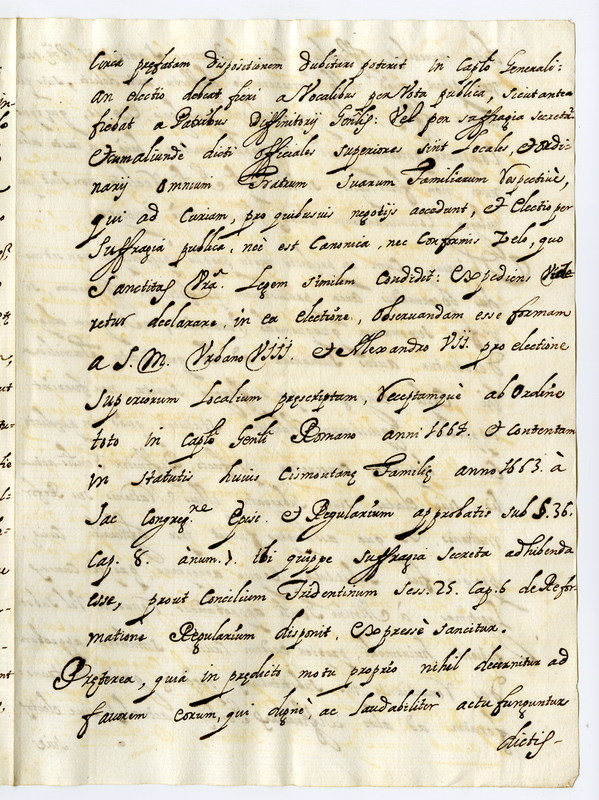 Circa pręfatam dispositionem dubitari poterit in Caplo Generali:
an electio debeat fieri a Vocalibus per Vota publica, sicut antea
fiebat a Patribus Diffinitorij Gńlis: Vel per suffragia secreta:
Et cum aliundè dicti officiales superiores sint Locales, et ordi-
narij omnium Fratrum suarum Familiarum respectivè,
qui ad Curiam, pro quibusuis negotijs accedunt, et Electio per
Suffragia publica, nec est Canonica, nec Conformis Zelo, quo
Sanctitas Vra. Legem similem Condidit: Expediens
retur declarare, in ea electione, observandam esse formam
a S. M. Urbano VIII. et Alexandro VII. pro electione
Superiorum Localium pręscriptam, Receptamquè ab Ordine
toto in Caplo Genli Romano anni 1664. et Contentam
in Statutis huius Cismontanę Familię anno 1663. à
Sac Congreg.ne Episc. et Regularium approbatis sub §. 36.
Cap. 8. ànum. 7. ibi quippe suffragia secreta adhibenda
esse, prout Concilium Tridentinum Sess. 25. Cap. 6 de Refor-
matione Regularium disponit, expressè sancitur.
Pręterea, quia in prędicto motu proprio nihil decernitur ad
favorem eorum, qui dignè, ac laudabilitèr actu funguntur
dictis-